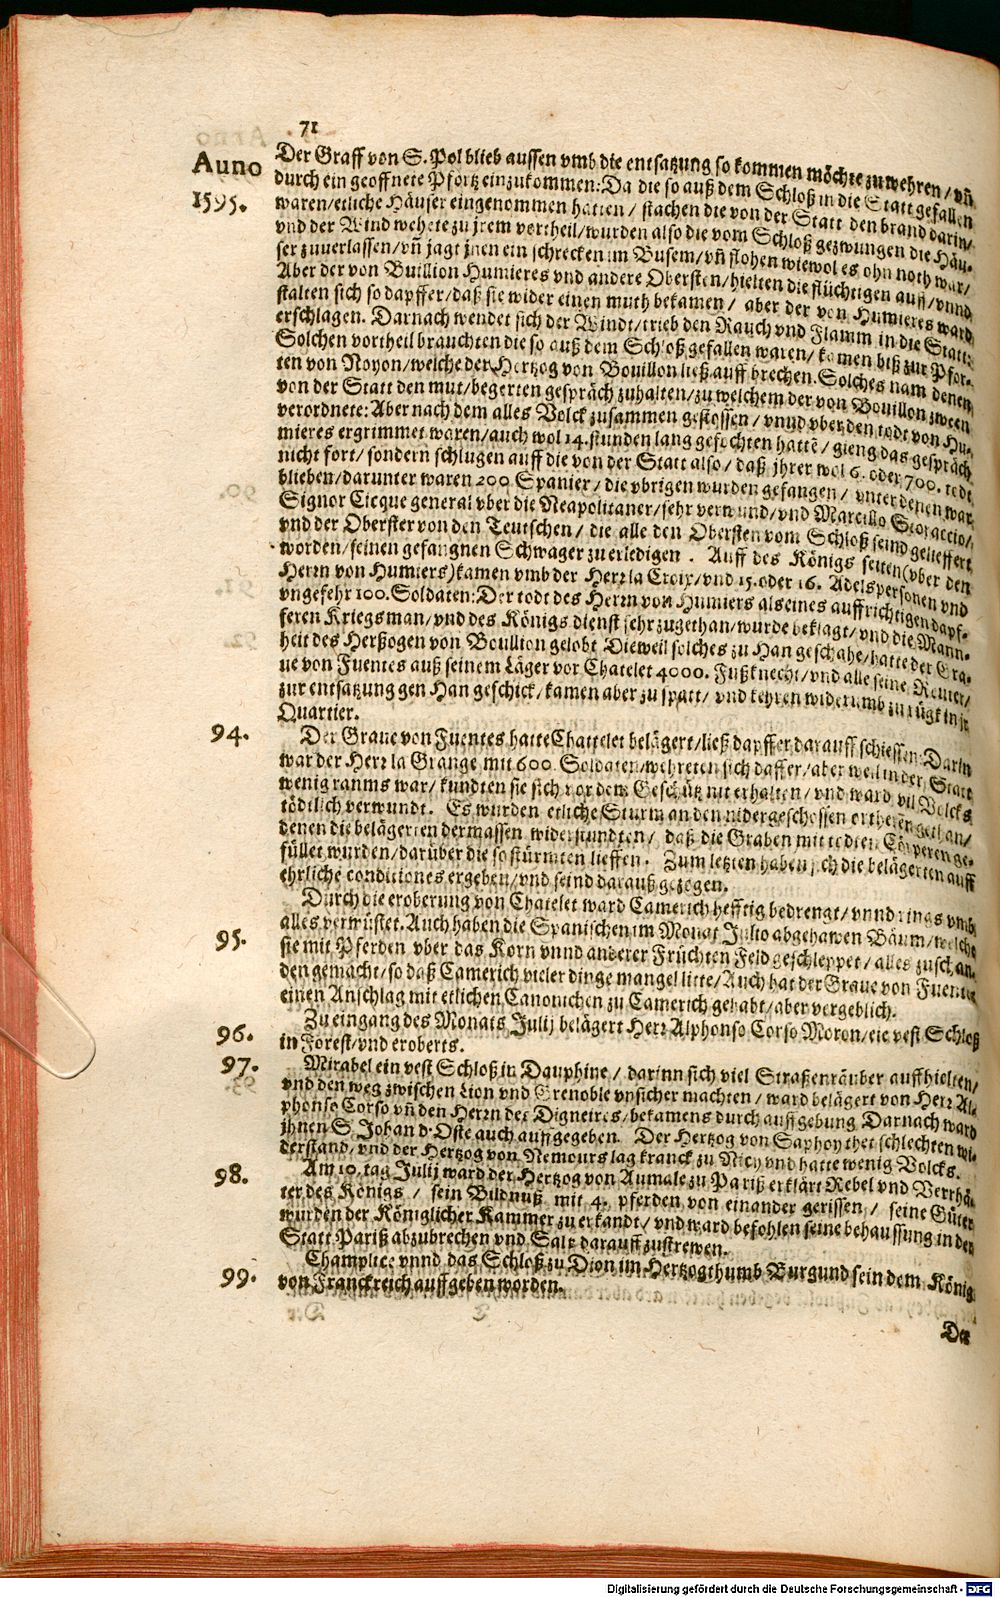 71
Auno
1595.
Der Graff von S. Pol blieb aussen vmb die entsatzung so kommen möchte zu wehren / vñ
durch ein geoffnete Pfortz einzukommen: Da die so auß dem Schloß in die Statt gefallen
waren/etliche Häuser eingenommen hatten / stachen die von der Statt den brand darin/
vnd der Wind wehete zu jrem vortheil/wurden also die vom Schloß gezwungen die Häu-
ser zuuerlassen/vñ jagt jnen ein schrecken im Busem/vñ flohen wiewol es ohn noth war/
Aber der von Buillion Humieres vnd andere Obersten/hielten die flüchtigen auff/vnnd
stalten sich so dapffer/daß sie wider einen muth bekamen / aber der von Humieres ward
erschlagen. Darnach wendet sich der Windt/trieb den Rauch vnd Flamm in die Statt:
Solchen vortheil brauchten die so auß dem Schloß gefallen waren/kamen biß zur Pfor-
ten von Noyon/welche der Hertzog von Bouillon ließ auff brechen. Solches nam denen
von der Statt den mut/begerten gespräch zuhalten/zu welchem der von Bouillon zween
verordnete: Aber nach dem alles Volck zusammen gestossen / vnnd vber den todt von Hu-
mieres ergrimmet waren/auch wol 14. stunden lang gefochten hattē / gieng das gespräch
nicht fort/sondern schlugen auff die von der Statt also / daß jhrer wol 6. oder 700. todt
blieben/darunter waren 200 Spanier / die vbrigen wurden gefangen / vnter denen war
Signor Cicque general vber die Neapolitaner/sehr verwund/vnd Marcello
vnd der Oberster von den Teutschen / die alle den Obersten vom Schloß seind gelieffert
worden/seinen gefangnen Schwager zu erledigen . Auff des Königs seiten (vber den
Herrn von Humiers) kamen vmb der Herr la Croix/vnd 15. oder 16. Adelspersonen vnd
vngefehr 100. Soldaten: Der todt des Herrn von Humiers als eines auffrichtigen dapf-
feren Kriegsman/vnd des Königs dienst sehr zugethan/wurde beklagt/vnd die Mann-
heit des Herßogen von Boullion gelobt Dieweil solches zu Han geschahe/hatte der Gra-
ue von Fuentes auß seinem Läger vor Chatelet 4000. Fußknecht/vnd alle seine Reuter/
zur entsatzung gen Han geschick/kamen aber zu spatt/ vnd kehren widerumb zu rügk in jr
Quartier.
94.
Der Graue von Fuentes hatte Chattelet belägert/ließ dapffer darauff schiessen: Darin
war der Herr la Grange mit 600. Soldaten/wehreten sich daffer/aber weil in der Statt
wenig ranms war/ kundten sie sich vor dem Geschütz nit erhalten / vnd ward vil Volcks
tödtlich verwundt. Es wurden etliche Sturm an den nidergeschossen ortheren gethan/
denen die belägerten dermassen widerstundten / daß die Graben mit todten Cörperen ge-
füllet wurden/darüber die so stürmten lieffen. Zum letzten haben sich die belägerten auff
ehrliche conditiones ergeben/vnd seind darauß gezogen.
95.
Durch die eroberung von Chatelet ward Camerich hefftig bedrengt/vnnd rings vmb
alles verwüstet. Auch haben die Spanischen im Monat Julio abgehawen Bäum/welche
sie mit Pferden vber das Korn vnnd anderer Früchten Feld geschleppet / alles zuschan-
den gemacht/so daß Camerich vieler dinge mangel litte/Auch hat der Graue von Fuentes
einen Anschlag mit etlichen Canonichen zu Camerich gehabt/aber vergeblich.
96.
Zu eingang des Monats Julij belägert Herr Alphonso Corso Moron/eie vest Schloß
in Forest/vnd eroberts.
97.
Mirabel ein vest Schloß in Dauphine / darinn sich viel Straßenräuber auffhielten/
vnd den weg zwischen Lion vnd Grenoble vnsicher machten / ward belägert von Herr Al-
phonso Corso vñ den Herrn der Digneires/bekamens durch auffgebung Darnach ward
jhnen S. Johan d'Oste auch auffgegeben. Der Hertzog von Saphoy thet schlechten wi-
derstand/vnd der Hertzog von Nemours lag kranck zu Nicy vnd hatte wenig Volcks.
98.
Am 10. tag Julij ward der Hertzog von Aumale zu Pariß erklärt Rebel vnd Verrhä-
ter des Königs / sein Bildnuß mit 4. pferden von einander gerissen / seine Güter
wurden der Königlicher Kammer zu erkandt/ vnd ward befohlen seine behaussung in der
Statt Pariß abzubrechen vnd Saltz darauff zustrewen.
99.
Champlite vnnd das Schloß zu Dion im Hertzogthumb Burgund sein dem König
von Franckreich auffgeben worden.
Der
Digitalisierung gefördert durch die Deutsche Forschungsgemeinschaft - DFG